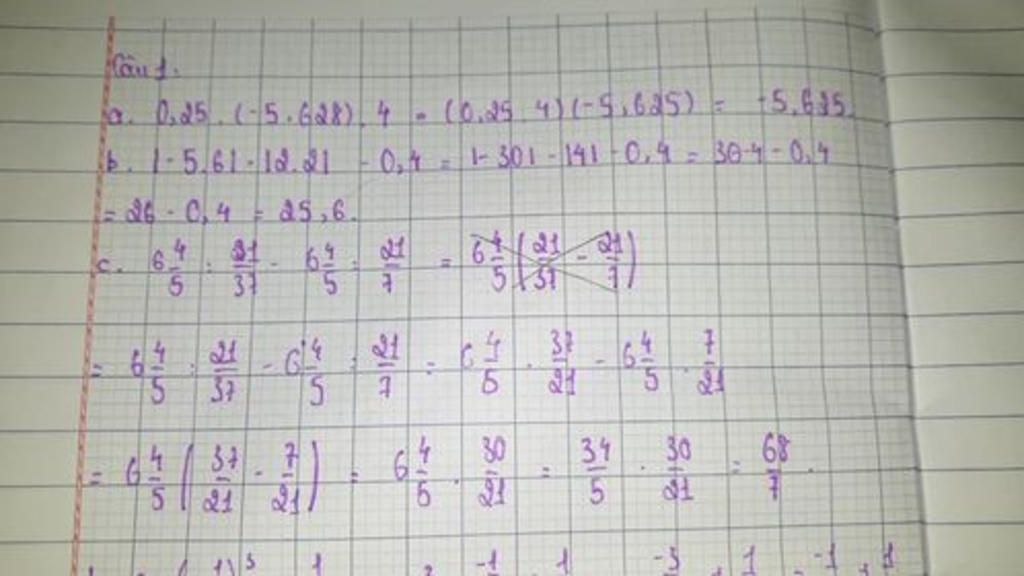 Câu 1.
a. 0,25 . (-5,628) . 4 = (0,25 . 4) (-5,625) = -5,625.
b. |-5.6| - |2.2| - 0,4 = |-30| - |4| - 0,4 = 30-4 - 0,4
= 26 - 0,4 = 25,6.
c. 6 4/5 : 21/37 - 6 4/5 : 21/7 = 6 4/5 ( 21/37 - 21/7 )
= 6 4/5 : 21/37 - 6 4/5 : 21/7 = 6 4/5 . 37/21 - 6 4/5 . 7/21
= 6 4/5 ( 37/21 - 7/21 ) = 6 4/5 . 30/21 = 34/5 . 30/21 = 68/7 .